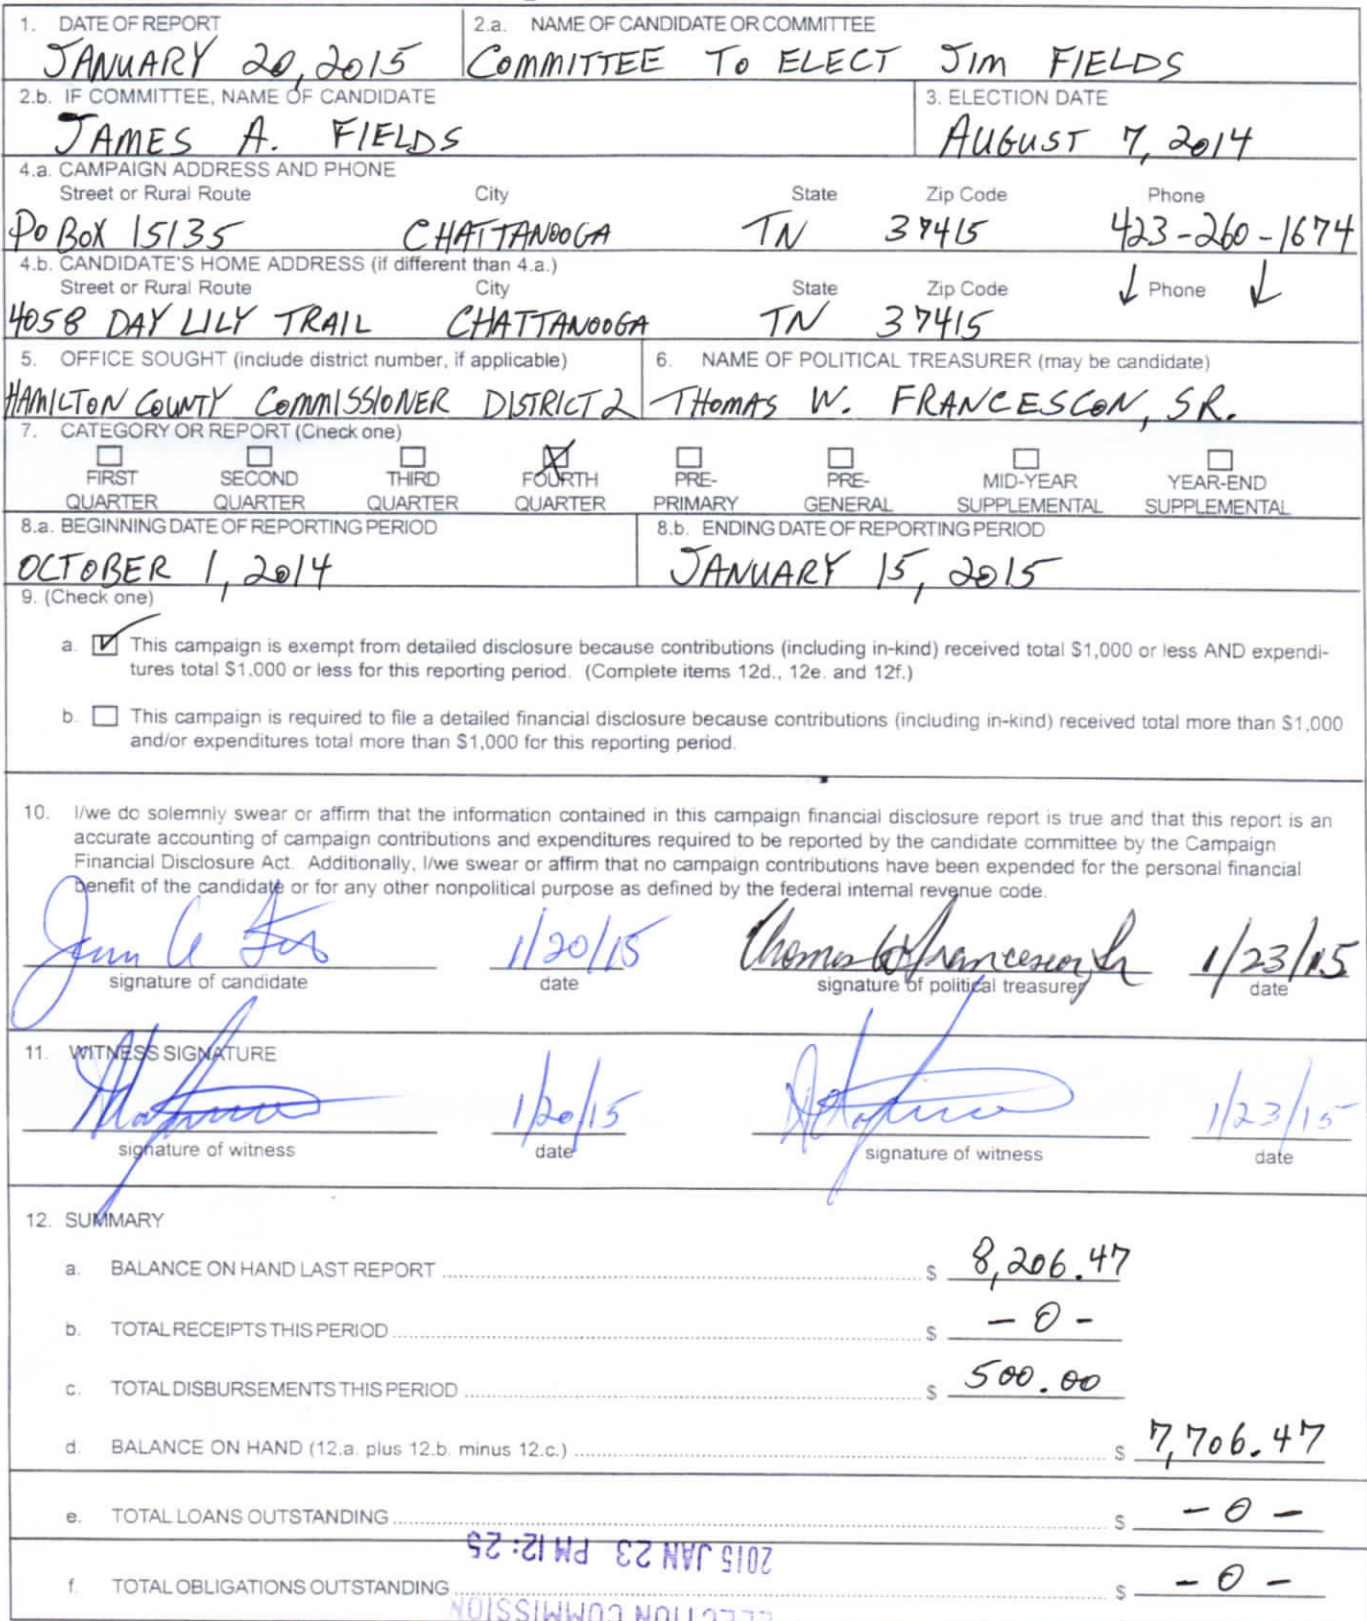 1. DATE OF REPORT
JANUARY 20, 2015
2.a. NAME OF CANDIDATE OR COMMITTEE
COMMITTEE TO ELECT JIM FIELDS
2.b. IF COMMITTEE, NAME OF CANDIDATE
JAMES A. FIELDS
3. ELECTION DATE
AUGUST 7, 2014
4.a. CAMPAIGN ADDRESS AND PHONE
Street or Rural Route City State Zip Code Phone
PO BOX 15135 CHATTANOOGA TN 37415 423-260-1674
4.b. CANDIDATE'S HOME ADDRESS (if different than 4.a.)
Street or Rural Route City State Zip Code ↓ Phone ↓
4058 DAY LILY TRAIL CHATTANOOGA TN 37415
5. OFFICE SOUGHT (include district number, if applicable)
HAMILTON COUNTY COMMISSIONER DISTRICT 2
6. NAME OF POLITICAL TREASURER (may be candidate)
THOMAS W. FRANCESCON, SR.
7. CATEGORY OR REPORT (Check one)
FIRST QUARTER
SECOND QUARTER
THIRD QUARTER
FOURTH QUARTER
PRE-PRIMARY
PRE-GENERAL
MID-YEAR SUPPLEMENTAL
YEAR-END SUPPLEMENTAL
8.a. BEGINNING DATE OF REPORTING PERIOD
OCTOBER 1, 2014
8.b. ENDING DATE OF REPORTING PERIOD
JANUARY 15, 2015
9. (Check one)
a. This campaign is exempt from detailed disclosure because contributions (including in-kind) received total $1,000 or less AND expendi-
tures total $1,000 or less for this reporting period. (Complete items 12d., 12e. and 12f.)
b. This campaign is required to file a detailed financial disclosure because contributions (including in-kind) received total more than $1,000
and/or expenditures total more than $1,000 for this reporting period.
10. I/we do solemnly swear or affirm that the information contained in this campaign financial disclosure report is true and that this report is an
accurate accounting of campaign contributions and expenditures required to be reported by the candidate committee by the Campaign
Financial Disclosure Act. Additionally, I/we swear or affirm that no campaign contributions have been expended for the personal financial
benefit of the candidate or for any other nonpolitical purpose as defined by the federal internal revenue code.
1/20/15 Thomas W Francescon, Sr 1/23/15
signature of candidate date signature of political treasurer date
11. WITNESS SIGNATURE
1/20/15 1/23/15
signature of witness date signature of witness date
12. SUMMARY
a. BALANCE ON HAND LAST REPORT $ 8,206.47
b. TOTAL RECEIPTS THIS PERIOD $ - 0 -
c. TOTAL DISBURSEMENTS THIS PERIOD $ 500.00
d. BALANCE ON HAND (12.a. plus 12.b. minus 12.c.) $ 7,706.47
e. TOTAL LOANS OUTSTANDING $ - 0 -
2015 JAN 23 PM 12:25
f. TOTAL OBLIGATIONS OUTSTANDING $ - 0 -
ELECTION COMMISSION